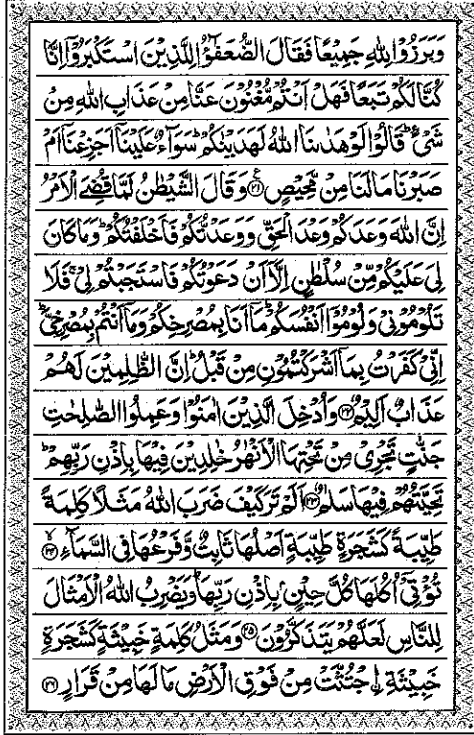 وَبَرَزُوْا لِلّٰهِ جَمِيْعًا فَقَالَ الضُّعَفٰٓؤُا لِلَّذِيْنَ اسْتَكْبَرُوْۤا اِنَّا
كُنَّا لَكُمْ تَبَعًا فَهَلْ اَنْتُمْ مُّغْنُوْنَ عَنَّا مِنْ عَذَابِ اللّٰهِ مِنْ
شَىْءٍ ؕ قَالُوْا لَوْ هَدٰىنَا اللّٰهُ لَهَدَيْنٰكُمْ ؕ سَوَآءٌ عَلَيْنَاۤ اَجَزِعْنَاۤ اَمْ
صَبَرْنَا مَا لَنَا مِنْ مَّحِيْصٍ ﴿۲۱﴾ وَقَالَ الشَّيْطٰنُ لَمَّا قُضِىَ الْاَمْرُ
اِنَّ اللّٰهَ وَعَدَكُمْ وَعْدَ الْحَقِّ وَوَعَدْتُّكُمْ فَاَخْلَفْتُكُمْ ؕ وَمَا كَانَ
لِىَ عَلَيْكُمْ مِّنْ سُلْطٰنٍ اِلَّاۤ اَنْ دَعَوْتُكُمْ فَاسْتَجَبْتُمْ لِىْ ۚ فَلَا
تَلُوْمُوْنِىْ وَلُوْمُوْۤا اَنْفُسَكُمْ ؕ مَاۤ اَنَا بِمُصْرِخِكُمْ وَمَاۤ اَنْتُمْ بِمُصْرِخِىَّ ؕ
اِنِّىْ كَفَرْتُ بِمَاۤ اَشْرَكْتُمُوْنِ مِنْ قَبْلُ ؕ اِنَّ الظّٰلِمِيْنَ لَهُمْ
عَذَابٌ اَلِيْمٌ ﴿۲۲﴾ وَاُدْخِلَ الَّذِيْنَ اٰمَنُوْا وَعَمِلُوا الصّٰلِحٰتِ
جَنّٰتٍ تَجْرِىْ مِنْ تَحْتِهَا الْاَنْهٰرُ خٰلِدِيْنَ فِيْهَا بِاِذْنِ رَبِّهِمْ ؕ
تَحِيَّتُهُمْ فِيْهَا سَلٰمٌ ﴿۲۳﴾ اَلَمْ تَرَ كَيْفَ ضَرَبَ اللّٰهُ مَثَلًا كَلِمَةً
طَيِّبَةً كَشَجَرَةٍ طَيِّبَةٍ اَصْلُهَا ثَابِتٌ وَّفَرْعُهَا فِى السَّمَآءِ ﴿۲۴﴾
تُؤْتِىْۤ اُكُلَهَا كُلَّ حِيْنٍۭ بِاِذْنِ رَبِّهَا ؕ وَيَضْرِبُ اللّٰهُ الْاَمْثَالَ
لِلنَّاسِ لَعَلَّهُمْ يَتَذَكَّرُوْنَ ﴿۲۵﴾ وَمَثَلُ كَلِمَةٍ خَبِيْثَةٍ كَشَجَرَةٍ
خَبِيْثَةِ ۨاجْتُثَّتْ مِنْ فَوْقِ الْاَرْضِ مَا لَهَا مِنْ قَرَارٍ ﴿۲۶﴾